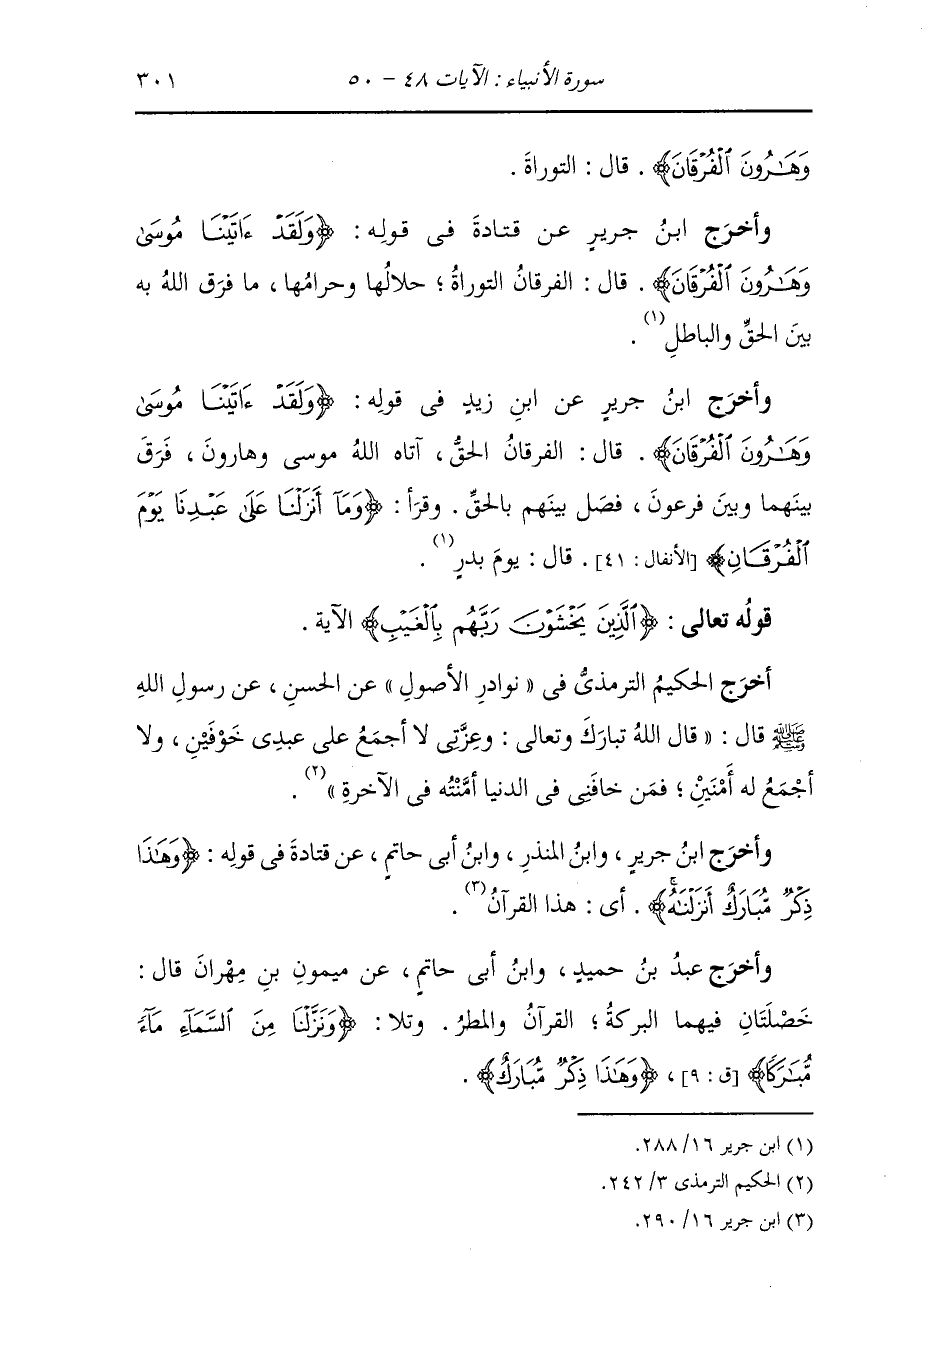 سورة الأنبياء : الآيات ٤٨ - ٥٠
٣٠١
وَهَـٰرُونَ ٱلْفُرْقَانَ﴾ . قال : التوراةَ .
وأخرَج ابنُ جريرٍ عن قتادةَ فى قولِه : ﴿وَلَقَدْ ءَاتَيْنَـا مُوسَىٰ
وَهَـٰرُونَ ٱلْفُرْقَانَ﴾ . قال : الفرقانُ التوراةُ ؛ حلالُها وحرامُها ، ما فرَق اللهُ به
بينَ الحقِّ والباطلِ(١) .
وأخرَج ابنُ جريرٍ عن ابنِ زيدٍ فى قولِه : ﴿وَلَقَدْ ءَاتَيْنَـا مُوسَىٰ
وَهَـٰرُونَ ٱلْفُرْقَانَ﴾ . قال : الفرقانُ الحقُّ ، آتاه اللهُ موسى وهارونَ ، فَرَقَ
بينَهما وبينَ فرعونَ ، فصَل بينَهم بالحقِّ . وقرَأ : ﴿وَمَآ أَنزَلْنَـا عَلَىٰ عَبْـدِنَا يَوْمَ
ٱلْفُرْقَـانِ﴾ [الأنفال : ٤١] . قال : يومَ بدرٍ(١) .
قولُه تعالى : ﴿ٱلَّذِينَ يَخْشَوْنَ رَبَّهُم بِٱلْغَيْبِ﴾ الآية .
أخرَج الحكيمُ الترمذىُّ فى « نوادرِ الأصولِ » عن الحسنِ ، عن رسولِ اللهِ
ﷺ قال : « قال اللهُ تبارَكَ وتعالى : وعِزَّتِى لا أجمَعُ على عبدِى خَوْفَيْنِ ، ولا
أجْمَعُ له أَمْنَيْنِ ؛ فمَن خافَنِى فى الدنيا أمَّنْتُه فى الآخرةِ »(٢) .
وأخرَج ابنُ جريرٍ ، وابنُ المنذرِ ، وابنُ أبى حاتمٍ ، عن قتادةَ فى قولِه : ﴿وَهَـٰذَا
ذِكْرٌ مُّبَارَكٌ أَنزَلْنَـٰهُۚ﴾ . أى : هذا القرآنُ(٣) .
وأخرَج عبدُ بنُ حميدٍ ، وابنُ أبى حاتمٍ ، عن ميمونِ بنِ مِهْرانَ قال :
خَصْلَتَانِ فيهما البركةُ ؛ القرآنُ والمطرُ . وتلا : ﴿وَنَزَّلْنَا مِنَ ٱلسَّمَآءِ مَآءً
مُّبَـٰرَكًا﴾ [ق : ٩] ، ﴿وَهَـٰذَا ذِكْرٌ مُّبَارَكٌ﴾ .
(١) ابن جرير ١٦/ ٢٨٨.
(٢) الحكيم الترمذى ٣/ ٢٤٢.
(٣) ابن جرير ١٦/ ٢٩٠.